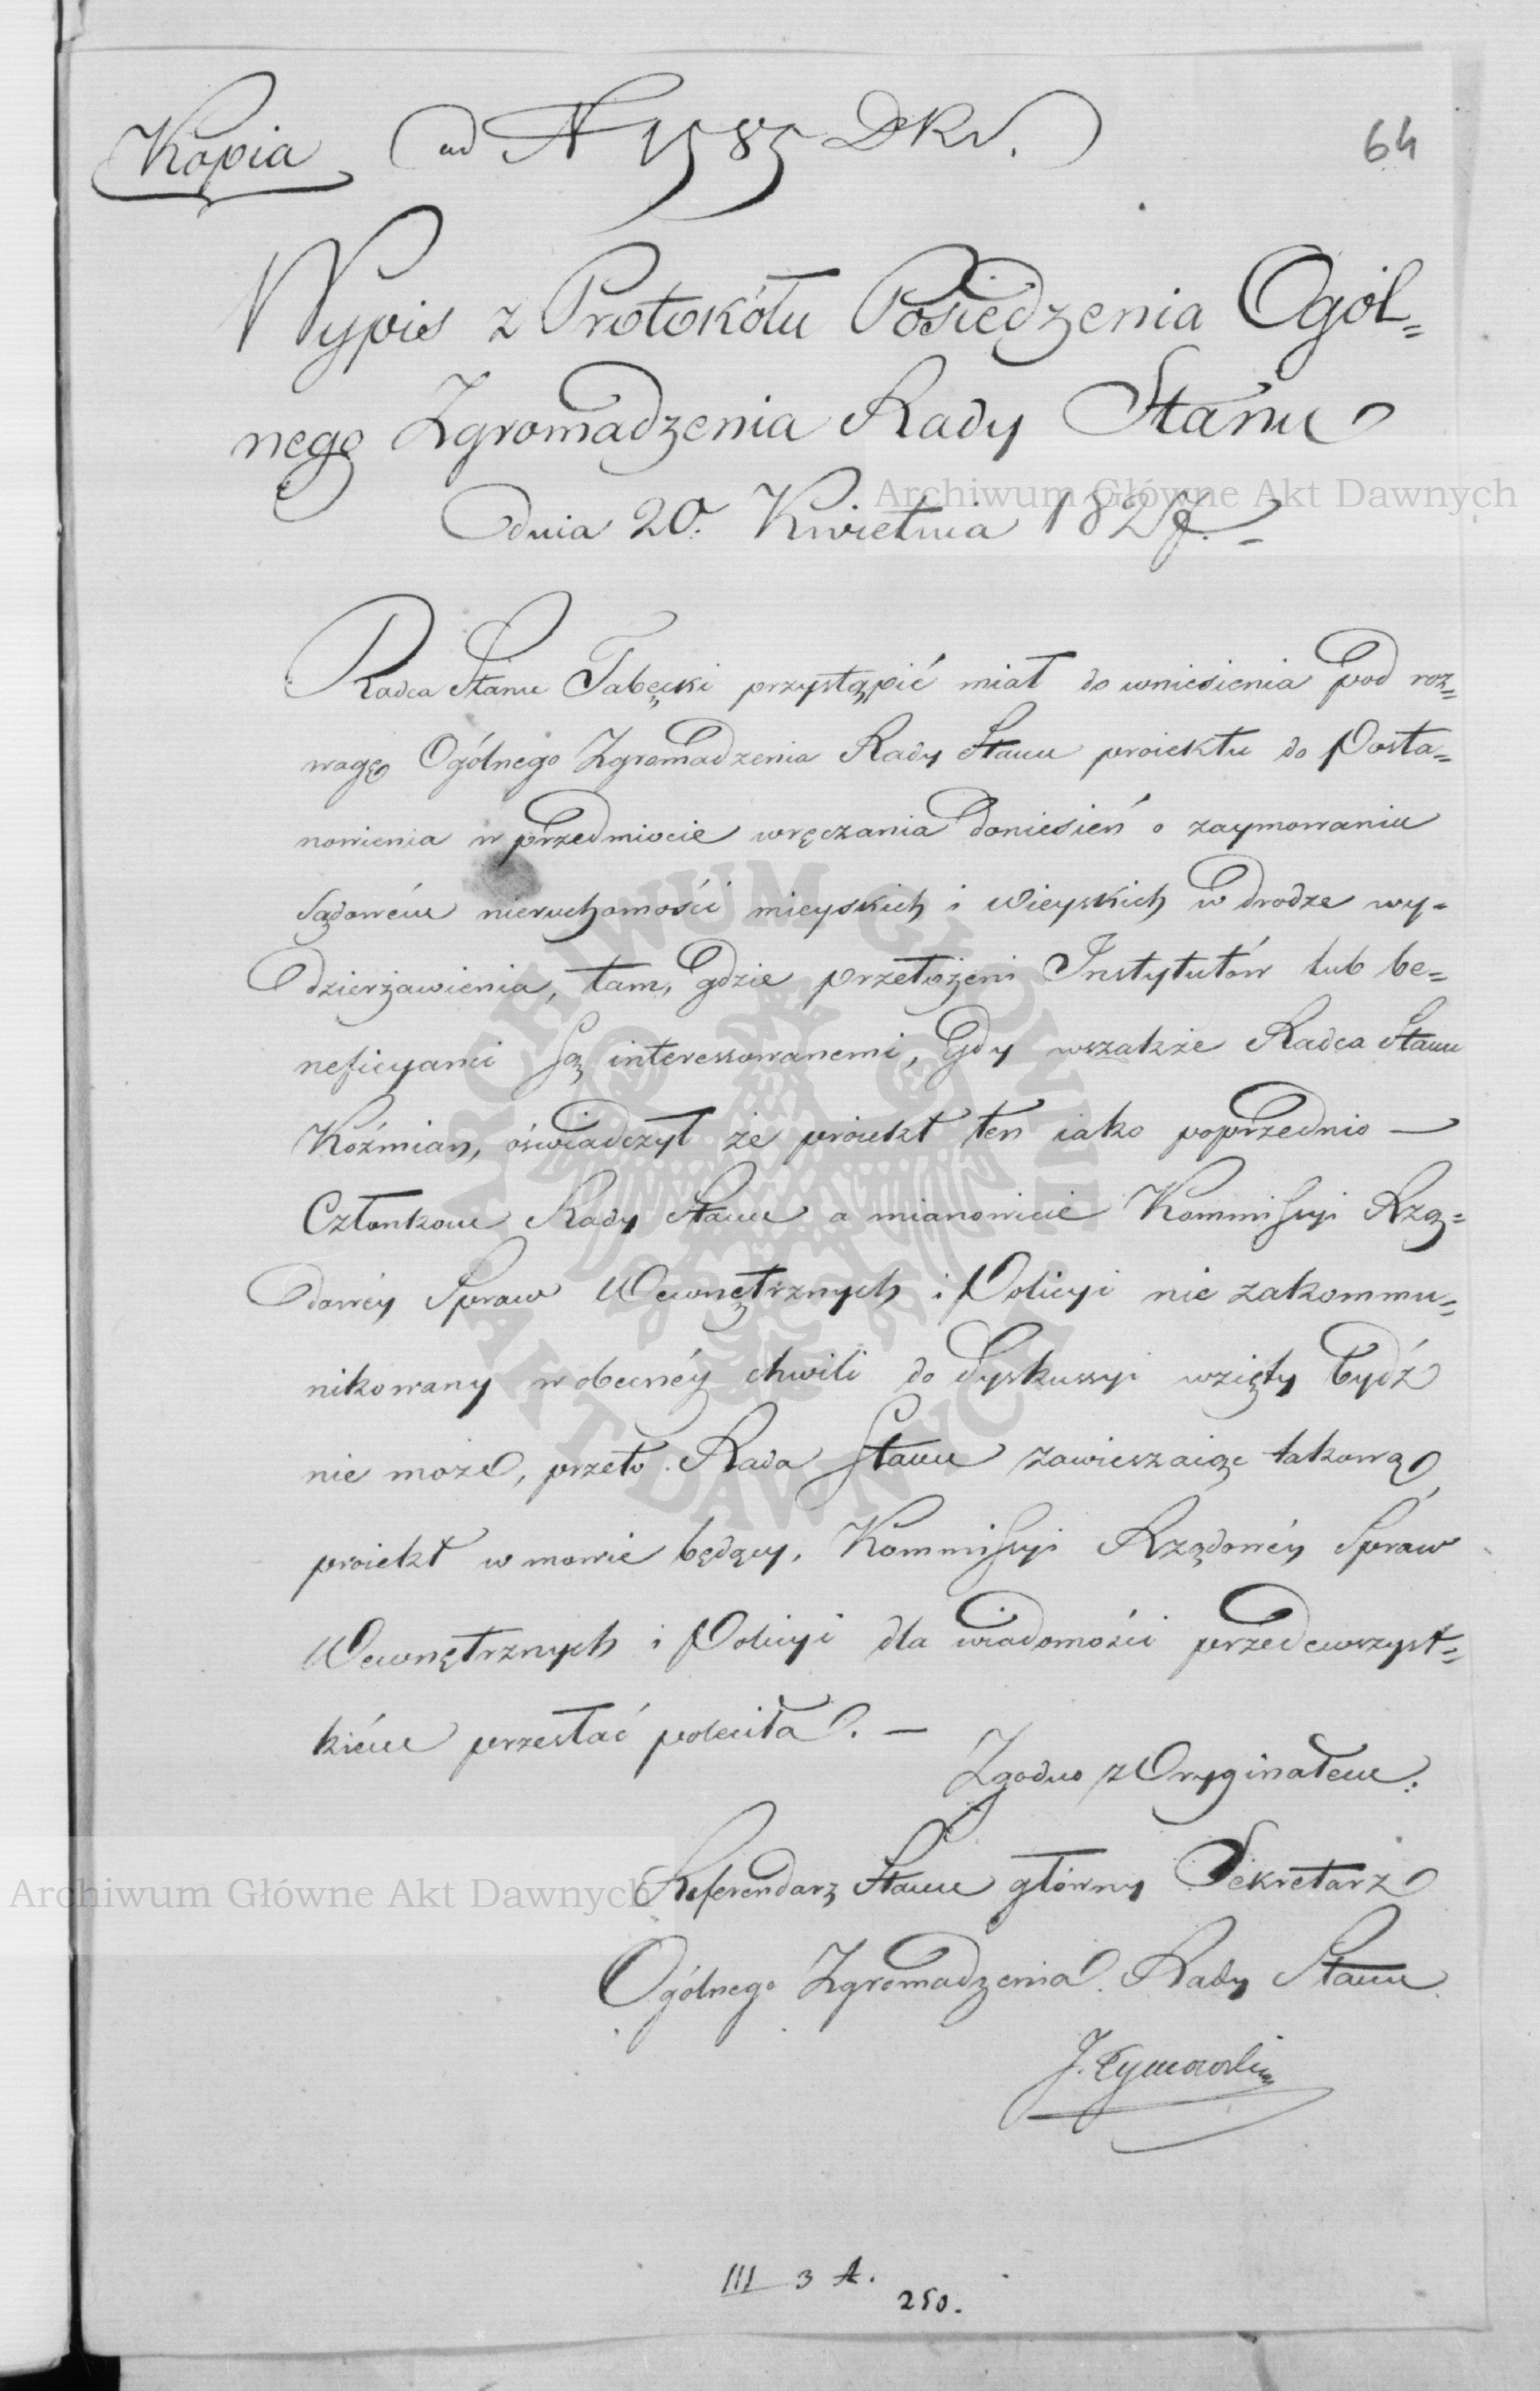 Kopia ad N 1585 DKS. 64
Wypis z Protokółu Posiedzenia Ogól=
nego Zgromadzenia Rady Stanu
dnia 20. Kwietnia 182
Radca Stanu Tabęcki przystąpić miał do wniesienia pod roz=
wagę Ogólnego Zgromadzenia Rady Stanu proiektu do Posta=
nowienia w przedmiocie wręczania doniesień o zaymowaniu
Sądowém nieruchomości mieyskich i wieyskich w drodze wy=
dzierżawienia, tam, gdzie przełożeni Instytutów lub be=
neficyanci są interessowanemi, Gdy wszakże Radca Stanu
Koźmian, oświadczył że proiekt ten iako poprzednio —
Członkom Rady Stanu a mianowicie Kommissyi Rzą=
dowéy Spraw Wewnętrznych i Policyi nie zakommu=
nikowany w obecnéy chwili do dyskussyi wzięty bydź
nie może, przeto Rada Stanu zawieszaiąc takową
proiekt w mowie będący, Kommissyi Rządowéy Spraw
Wewnętrznych i Policyi dla wiadomości przedewszyst=
kiém przesłać poleciła. —
Zgodno z Oryginałem:
Referendarz Stanu główny Sekretarz
Ogólnego Zgromadzenia Rady Stanu
J. Tymowski
III 3 A.
250.
Archiwum Główne Akt Dawnych
Archiwum Główne Akt Dawnych
ARCHIWUM GŁÓWNE AKT DAWNYCH